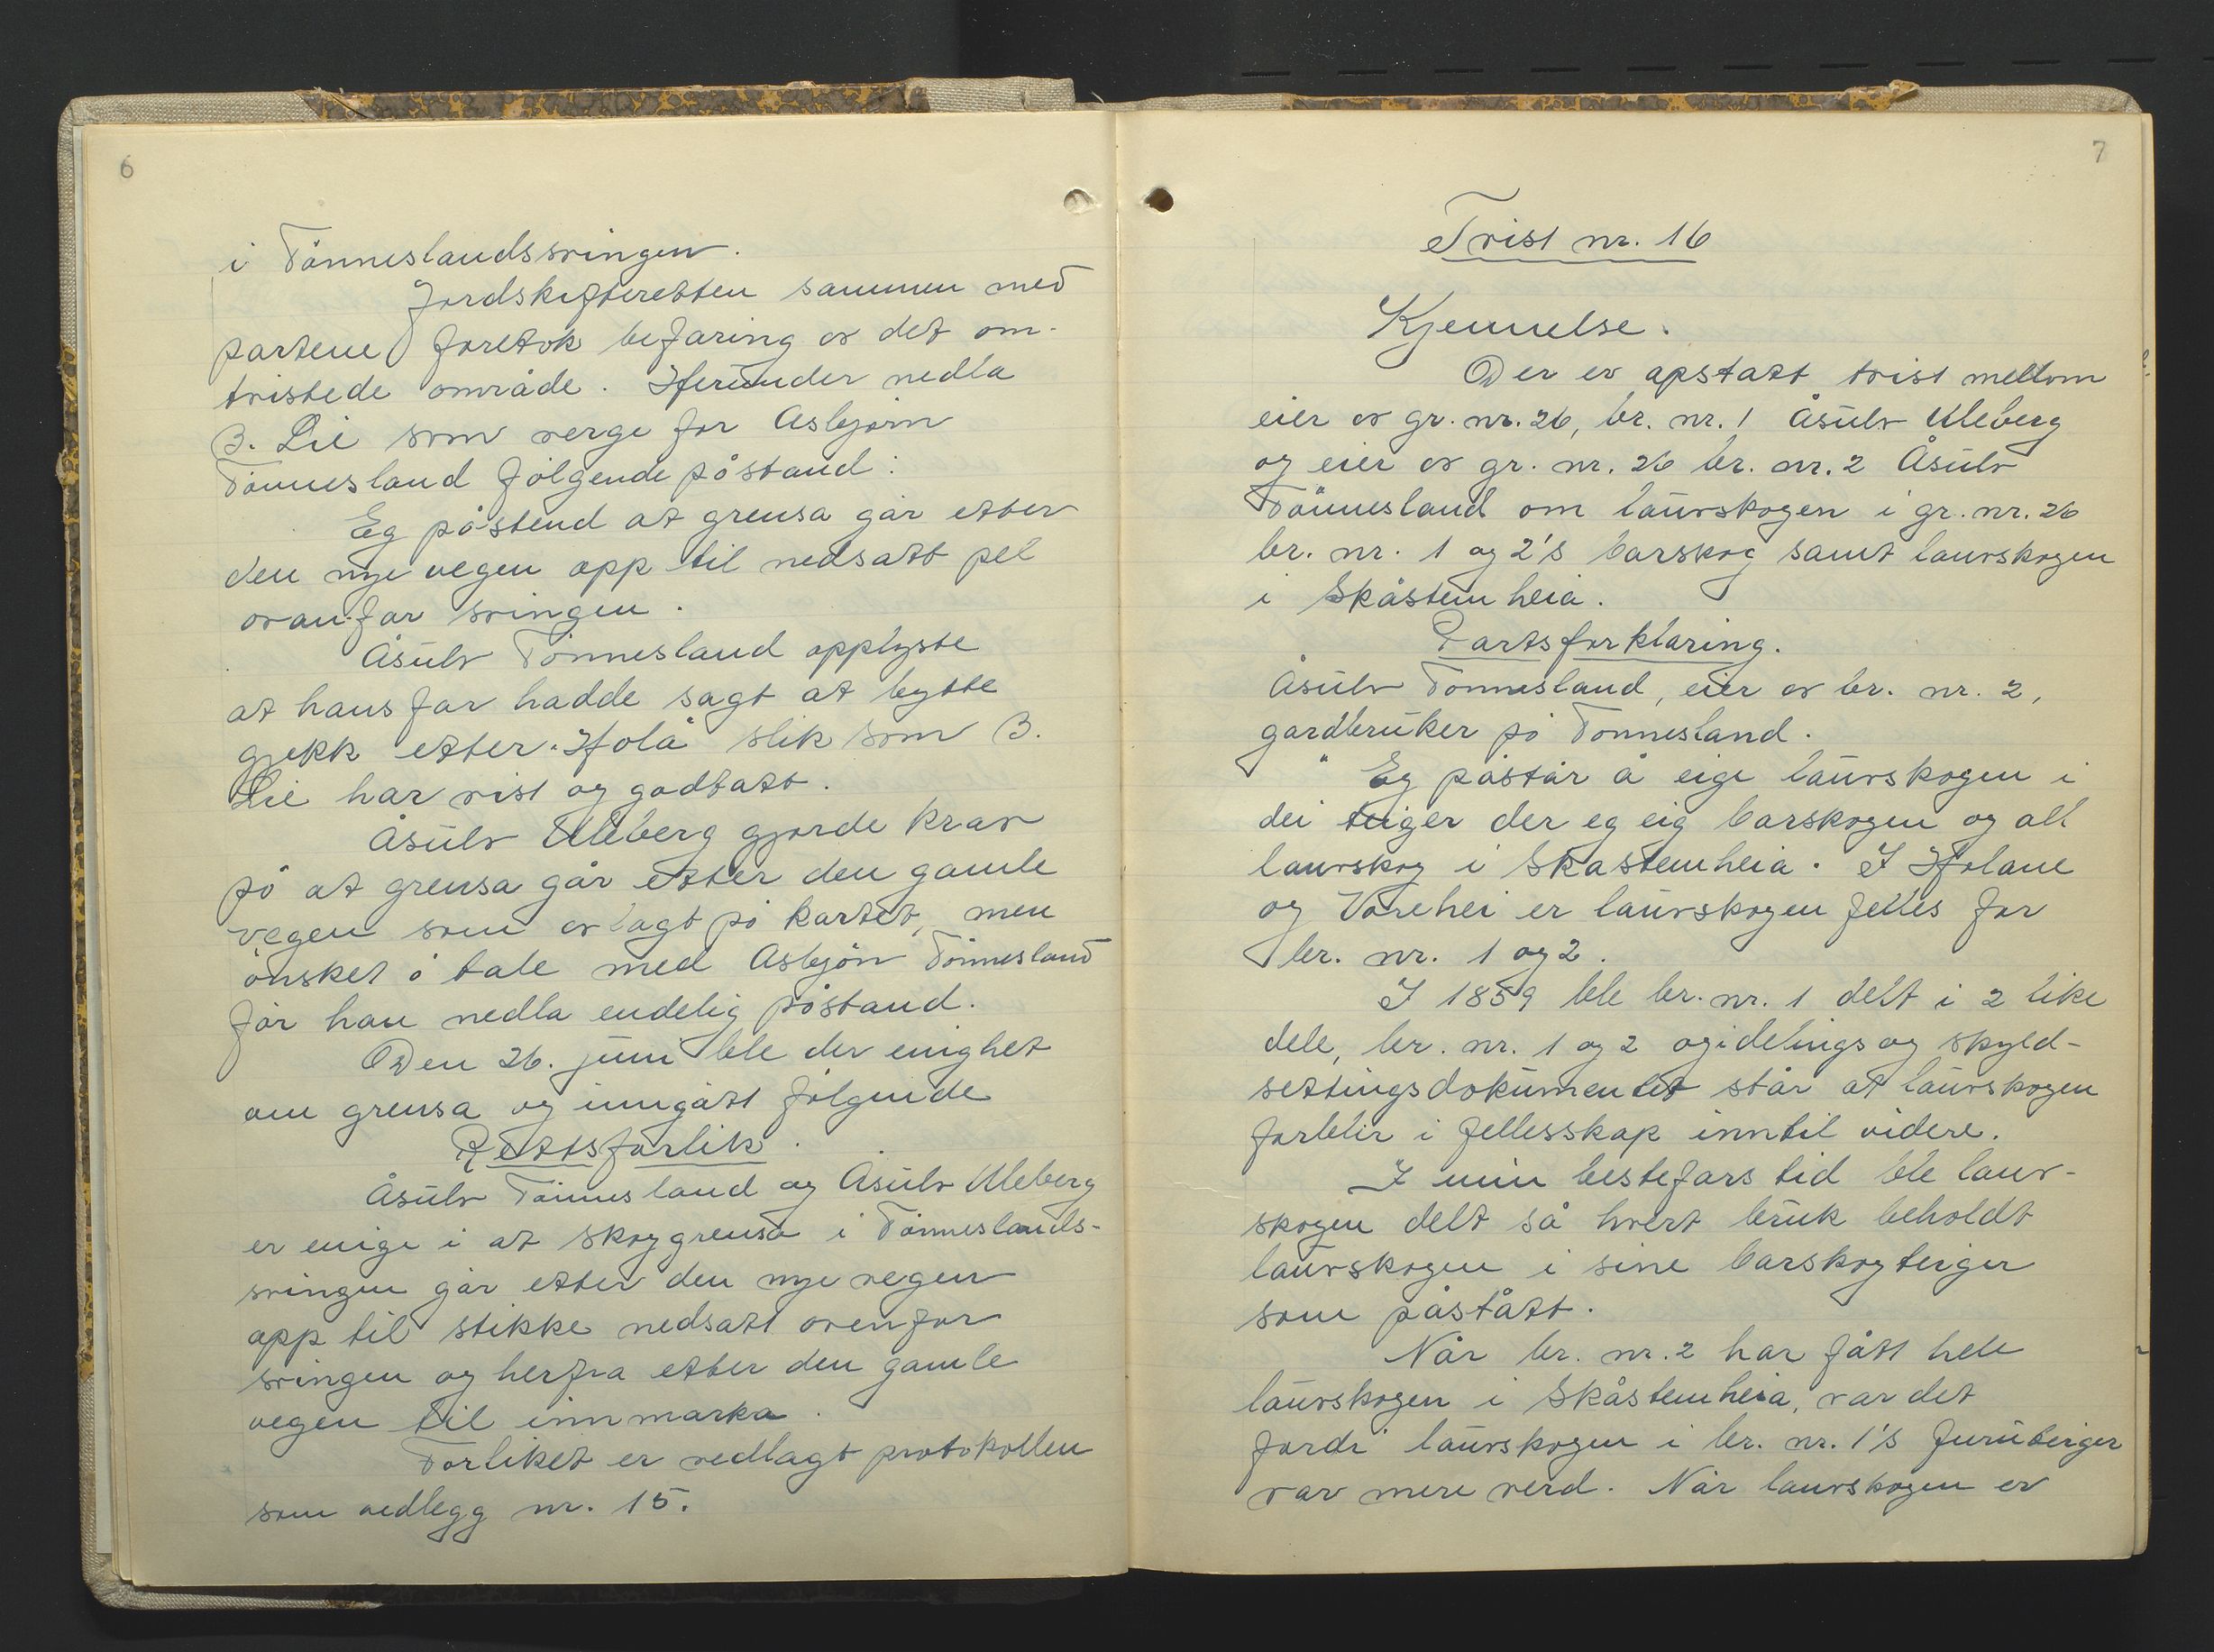 6
i Tönneslandssvingen.
Jordskifteretten sammen med
partene foretok befaring av det om-
tvistede område. Herunder nedla
B. Lie som verge for Asbjörn
Tönnesland fölgende påstand:
Eg påstend at grensa går etter
den nye vegen opp til nedsatt pel
ovanfor svingen.
Åsulv Tönnesland opplyste
at hans far hadde sagt at bytte
gjekk etter "Holå" slik som B.
Lie har vist og godtatt.
Åsulv Uleberg gjorde krav
på at grensa går etter den gamle
vegen som er lagt på kartet, men
önsket å tale med Asbjön Tönnesland
för han nedla endelig påstand.
Den 26. juni ble der enighet
om grensa og inngått fölgende
Rettsforlik.
Åsulv Tönnesland og Åsulv Uleberg
er enige i at skoggrensa i Tönneslands-
svingen går etter den nye vegen
opp til stikke nedsatt ovenfor
svingen og herfra etter den gamle
vegen til innmarka.
Forliket er vedlagt protokollen
som vedlegg nr. 15.
7
Tvist nr. 16
Kjennelse.
Der er opstått tvist mellom
eier av gr. nr. 26, br. nr. 1 Åsulv Uleberg
og eier av gr. nr. 26 br. nr. 2 Åsulv
Tönnesland om lauvskogen i gr. nr. 26
br. nr. 1 og 2's barskog samt lauvskogen
i Skåstemheia.
Partsforklaring.
Åsulv Tönnesland, eier av br. nr. 2,
gardbruker på Tönnesland.
" Eg påstår å eige lauvskogen i
dei teiger der eg eig barskogen og all
lauvskog i Skåstemheia. I Holane
og Vårehei er lauvskogen felles for
br. nr. 1 og 2.
I 1859 ble br. nr. 1 delt i 2 like
dele, br. nr. 1 og 2 og i delings og skyld-
settingsdokumentet står at lauvskogen
forblir i fellesskap inntil videre.
I min bestefars tid ble lauv-
skogen delt så hvert bruk beholdt
lauvskogen i sine barskogteiger
som påstått.
Når br. nr. 2 har fått hele
lauvskogen i Skåstemheia, var det
fordi lauvskogen i br. nr. 1's furuteiger
var mere verd. Når lauvskogen er